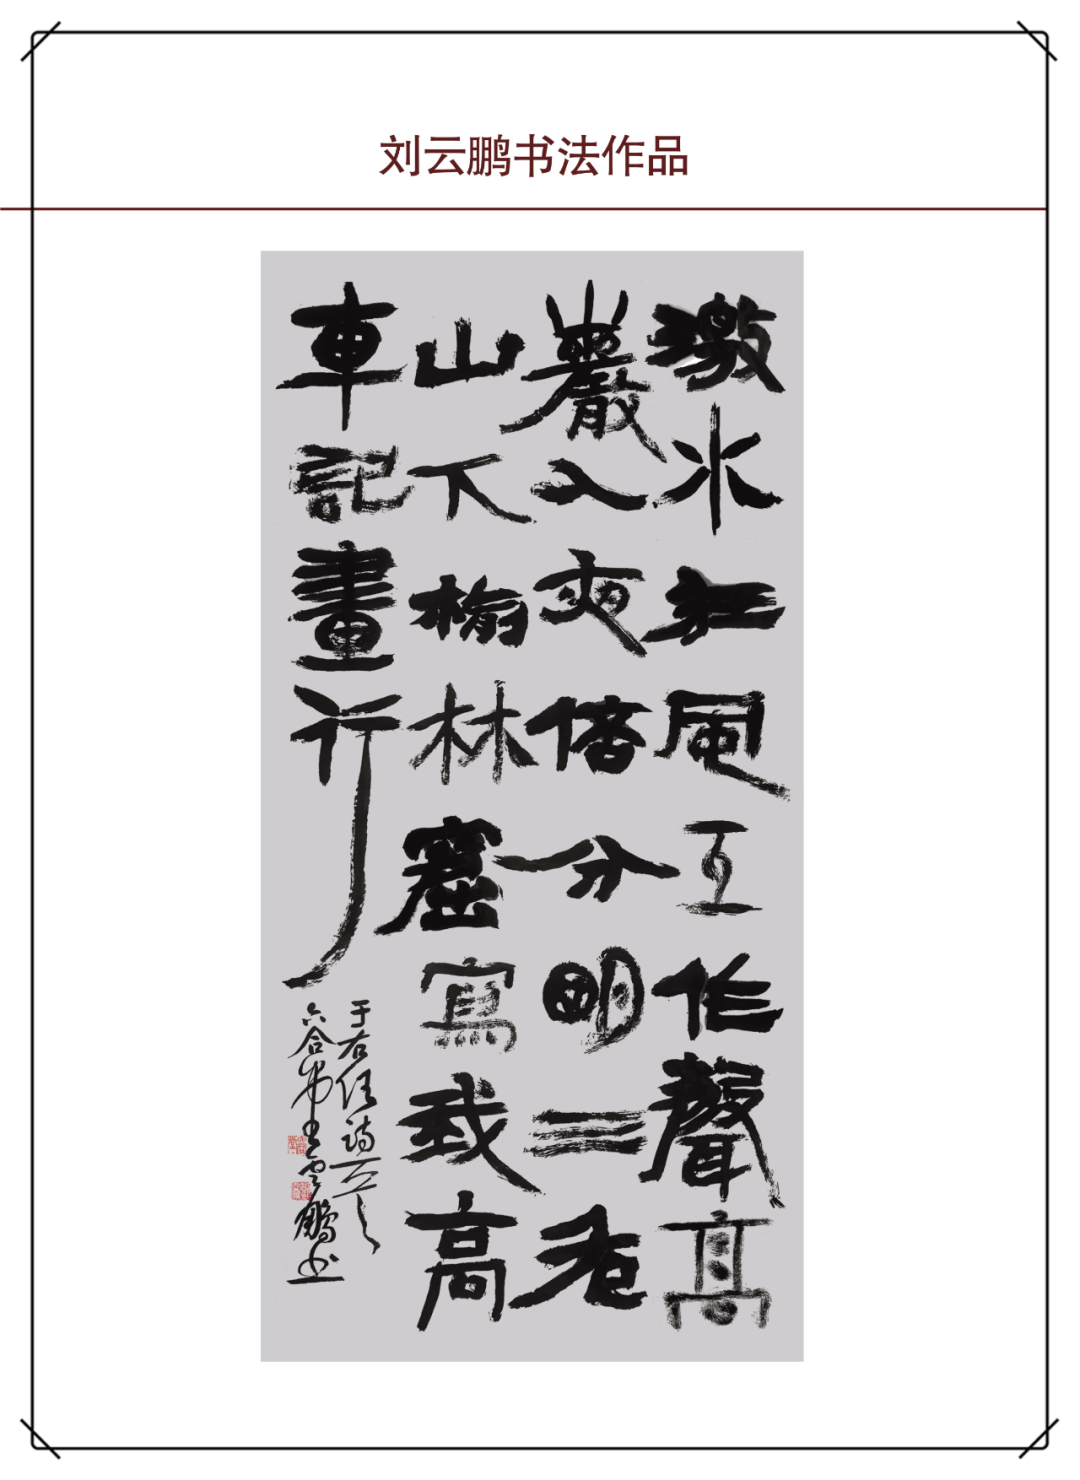 刘云鹏书法作品
激水狂風互作聲高
巖入夜倍分明三危
山下榆林窟寫我高
車記畫行
于右任詩
六合 雲鵬书